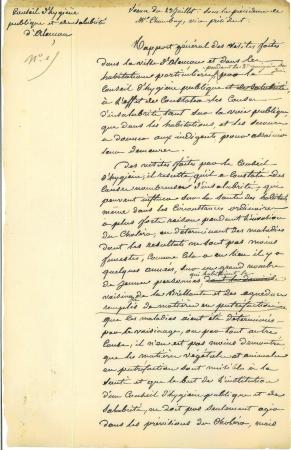 Conseil d'hygiène
publique et de salubrité
d'Alencon
N° 1
Séance du 2 Juillet sous la présidence de
Mr Chambay, vice président
Rapport général des visites faites
dans la ville d'Alencon et dans les
habitations particulières, par le
Conseil d'hygiène publique et de salubrité
à l'effet de Constater les Causes
d'insalubrité tant sur la voie publique
que dans les habitations et les secours
à donner aux indigents pour assainir
leur demeure.
Des visites faites par le Conseil
d'hygiène, il résulte, qu'il a Constaté des
Causes nombreuses d'insalubrité, que
peuvent influer sur la santé des habitants
même dans les Circonstances ordinaires
à plus forte raison pendant l'invasion
du Choléra, en déterminant des maladies
dont les résultats ne sont pas moins
funestes, Comme Cela a eu lieu il y a
quelques années, sur un grand nombre
de jeunes personnes qui habitaient le
voisinage de la Brillante et des aqueducs
remplis de matières en putréfaction
que les maladies aient été déterminées
par le voisinage, ou par tout autre
Cause, il n'en est pas moins démontré
que les matières végétales et animales
en putréfaction sont nuisibles à la
santé et que le but de l'institution
d'un Conseil d'hygiène publique et de
salubrité, ne doit pas seulement agir
dans les prévisions du Choléra, mais